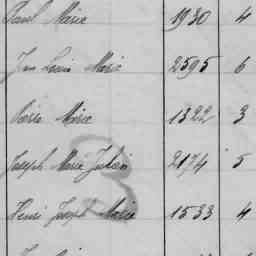 Paul Marie 1930 4
Jean Louis Marie 2595 6
Pierre Marie 1322 3
Joseph Marie Julien 2174 5
Henri Joseph Marie 1533 4